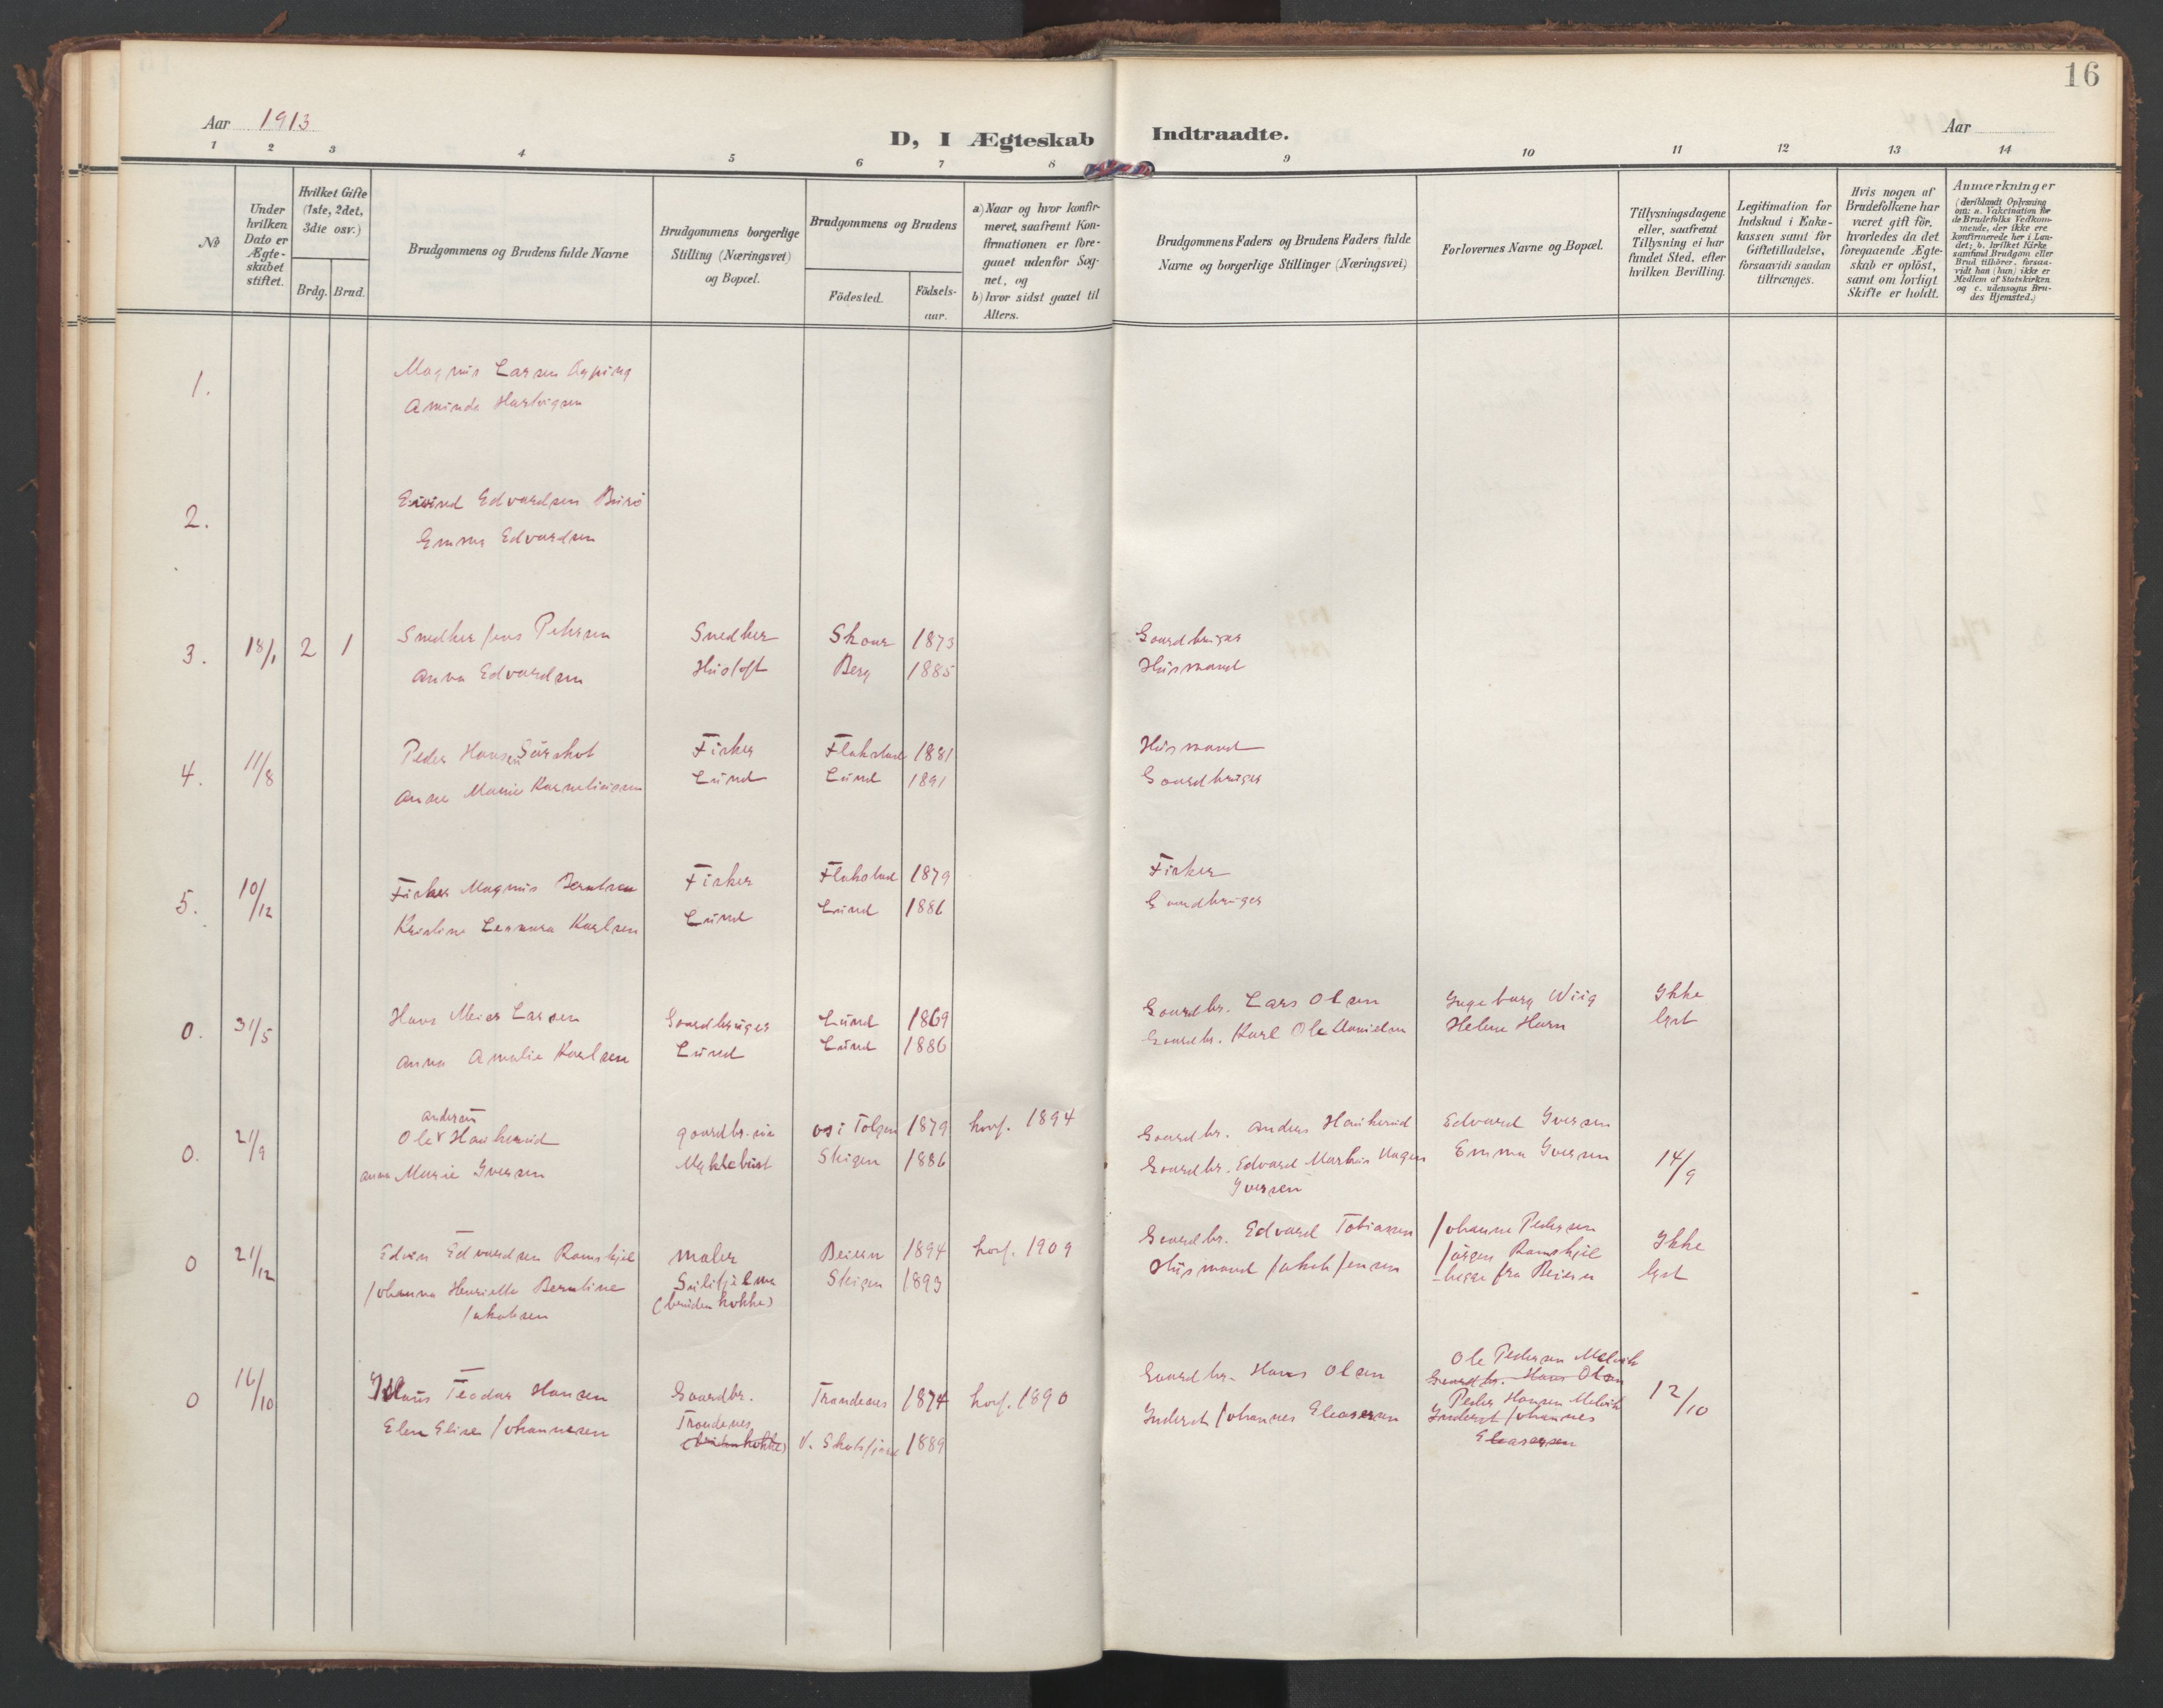 16
Aar 1913
D, I Ægteskab Indtraadte.
Aar
1 2 3 4 5 6 7 8 9 10 11 12 13 14
No
Under hvilken Dato er Ægteskabet stiftet.
Hvilket Gifte (1ste, 2det, 3die osv.)
Brdg. Brud.
Brudgommens og Brudens fulde Navne
Brudgommens borgerlige Stilling (Næringsvei) og Bopæl.
Brudgommens og Brudens
Födested. Födselsaar.
a) Naar og hvor konfirmeret, saafremt Konfirmationen er foregaaet udenfor Sognet, og
b) hvor sidst gaaet til Alters.
Brudgommens Faders og Brudens Faders fulde Navne og borgerlige Stillinger (Næringsvei)
Forlovernes Navne og Bopæl.
Tillysningsdagene eller, saafremt Tillysning ei har fundet Sted, efter hvilken Bevilling.
Legitimation for Indskud i Enkekassen samt for Giftetilladelse, forsaavidt saadan tiltrænges.
Hvis nogen af Brudefolkene har været gift för, hvorledes da det foregaaende Ægteskab er oplöst, samt om lovligt Skifte er holdt.
Anmærkninger
(deriblandt Oplysning om: a. Vakcination for de Brudefolks Vedkommende, der ikke ere konfirmerede her i Landet; b. hvilket Kirkesamfund Brudgom eller Brud tilhörer, forsaavidt han (hun) ikke er Medlem af Statskirken og c. udensogns Brudes Hjemsted.)
1. Magnus Larsen
Aminda Hartvigsen
2. Eivind Edvardsen
Emma Edvardsen
3. 18/1 2 1 Snedker Jens Petersen Snedker Skaar 1873 Gaardbruger
Anna Edvardsen Husloft Berg 1885 Husmand
4. 11/8 Peder Hansen Fisker Flakstad 1881 Husmand
Anne Marie Korneliussen Lund Lund 1891 Gaardbruger
5. 10/12 Fisker Magnus Berntsen Fisker Flakstad 1879 Fisker
Kristine Leonora Karlsen Lund Lund 1886 Gaardbruger
0. 31/5 Hans Meier Larsen Gaardbruger Lund 1869 Gaardbr. Lars Olsen Ingeborg Wiig Ikke
Anna Amalie Karlsen Lund Lund 1886 Gaardbr. Karl Ole Danielsen Helene Horn lyst
Andersen
0. 21/9 Ole Haukerud gaardbr. Tolgen 1879 konf. 1894 Gaardbr. Anders Haukerud Edvard Iversen
Anna Marie Iversen Myklebust Steigen 1886 Gaardbr. Edvard Markus Iversen Emma Iversen 14/9
0 21/12 Edvin Edvardsen Ramskjel maler Beiern 1894 konf. 1909 Gaardbr. Edvard Tobiassen Johanne Pedersen Ikke
Johanna Henriette Berntine Sulitjelma Steigen 1893 Husmand Jakob Jensen Jörgen Ramskjel lyst
Jakobsen (bruden kokke) begge fra Beiern
0 16/10 Teodor Hansen Gaardbr. Trondenes 1874 konf. 1890 Gaardbr. Hans Olsen Ole Pedersen Melvik
Gaardbr. Hans Olsen 12/10
Elen Elise Johannesen Trondenes 1889 Inderst Johannes Eleasersen Peder Hansen Melvik
Inderst Johannes
Eleasersen